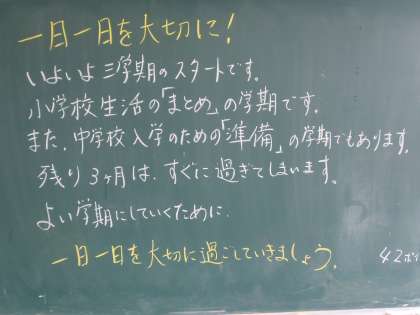 一日一日を大切に！
いよいよ三学期のスタートです。
小学校生活の「まとめ」の学期です。
また、中学校入学のための「準備」の学期でもあります。
残り3ヶ月は、すぐに過ぎてしまいます。
よい学期にしていくために、
一日一日を大切に過ごしていきましょう。